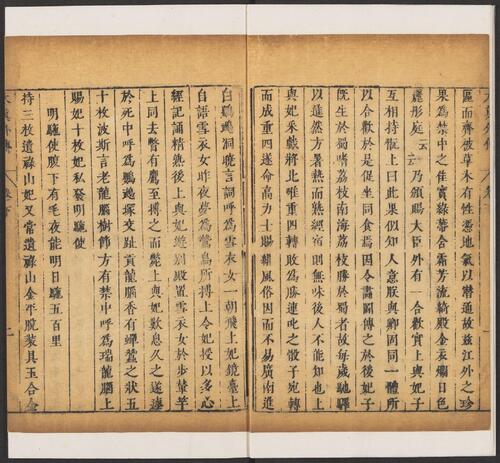 區而齊被草木有性憑地氣以潛通故茲江外之珍
果為禁中之佳實綠蒂含霜芳流綺殿金衣爛日色
麗彤庭云云乃頒賜大臣外有一合歡實上與妃子
互相持翫上曰此果似知人意朕與卿固同一體所
以合歡於是促坐同食焉因令畫圖傳之於後妃子
既生於蜀嗜荔枝南海荔枝勝於蜀者故每歲馳驛
以進然方暑熱而熟經宿則無味後人不能知也上
與妃采戲將北唯重四轉敗為勝連叱之骰子宛轉
而成重四遂命高力士賜緋風俗因而不易廣南進
白鸚鵡洞曉言詞呼為雪衣女一朝飛上妃鏡臺上
自語雪衣女昨夜夢為鷙鳥所搏上令妃授以多心
經記誦精熟後上與妃遊別殿置雪衣女於步輦竿
上同去瞥有鷹至搏之而斃上與妃歎息久之遂瘞
於死中呼為鸚鵡塚交趾貢龍腦香有蟬蠶之狀五
十枚波斯言老龍腦樹節方有禁中呼為瑞龍腦上
賜妃十枚妃私發明駝使
明駝使腹下有毛夜能明日馳五百里
持三枚遺祿山妃又常遺祿山金平脫裝具玉合金